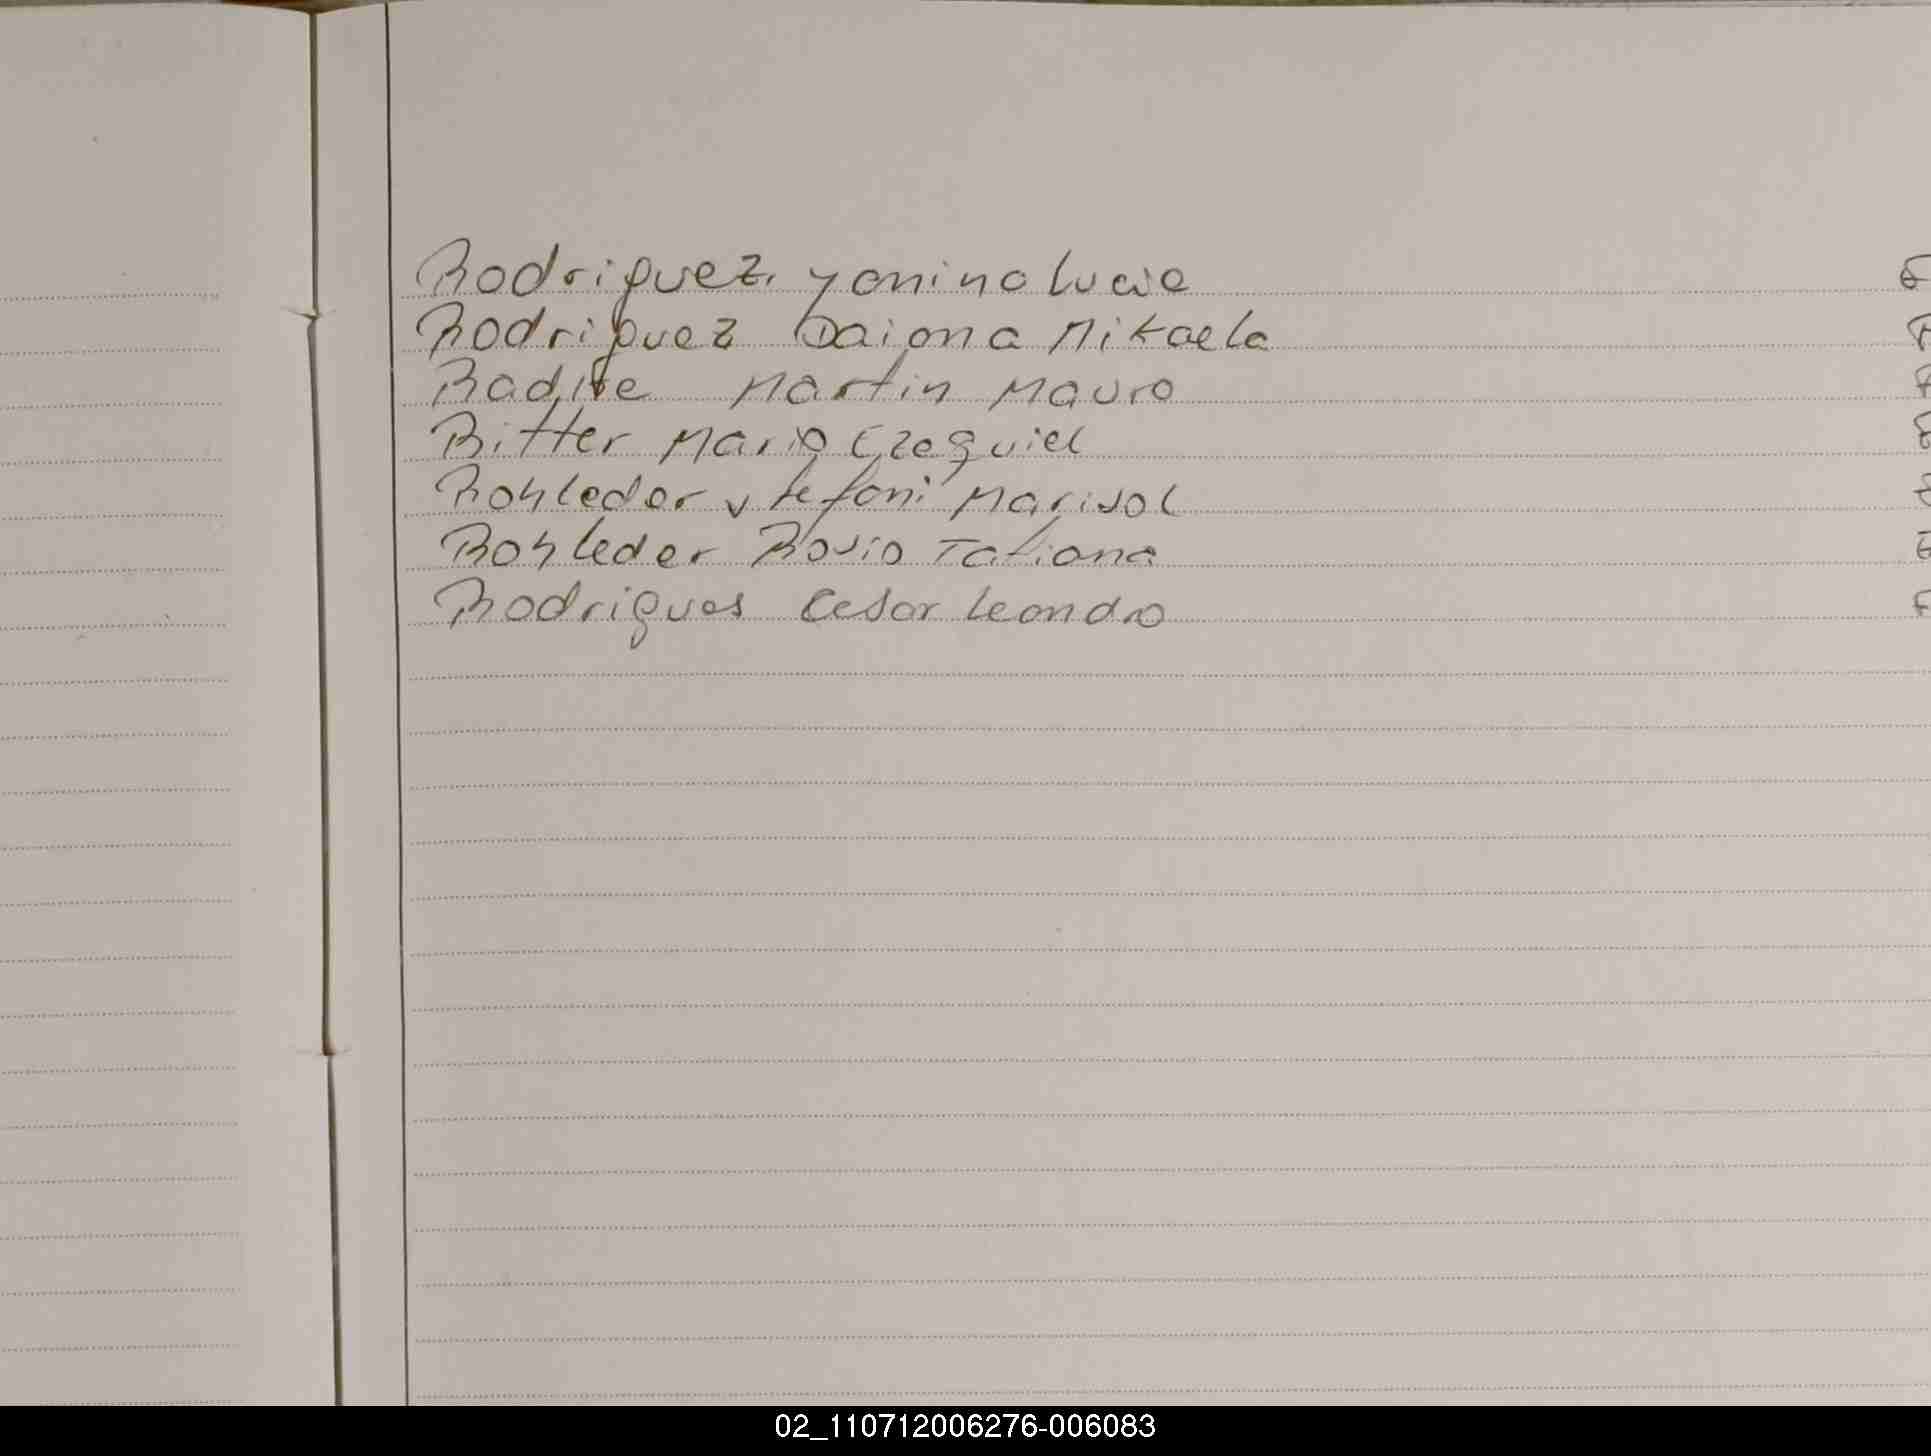 Rodriguez yanina Lucia
Rodriguez Daiana Mikaela
Martin Mauro
Ritter Mario Ezequiel
Rohleder stefani Marisol
Rohleder Rosio Tatiana
Rodrigues Cesar Leandro
02_110712006276-006083